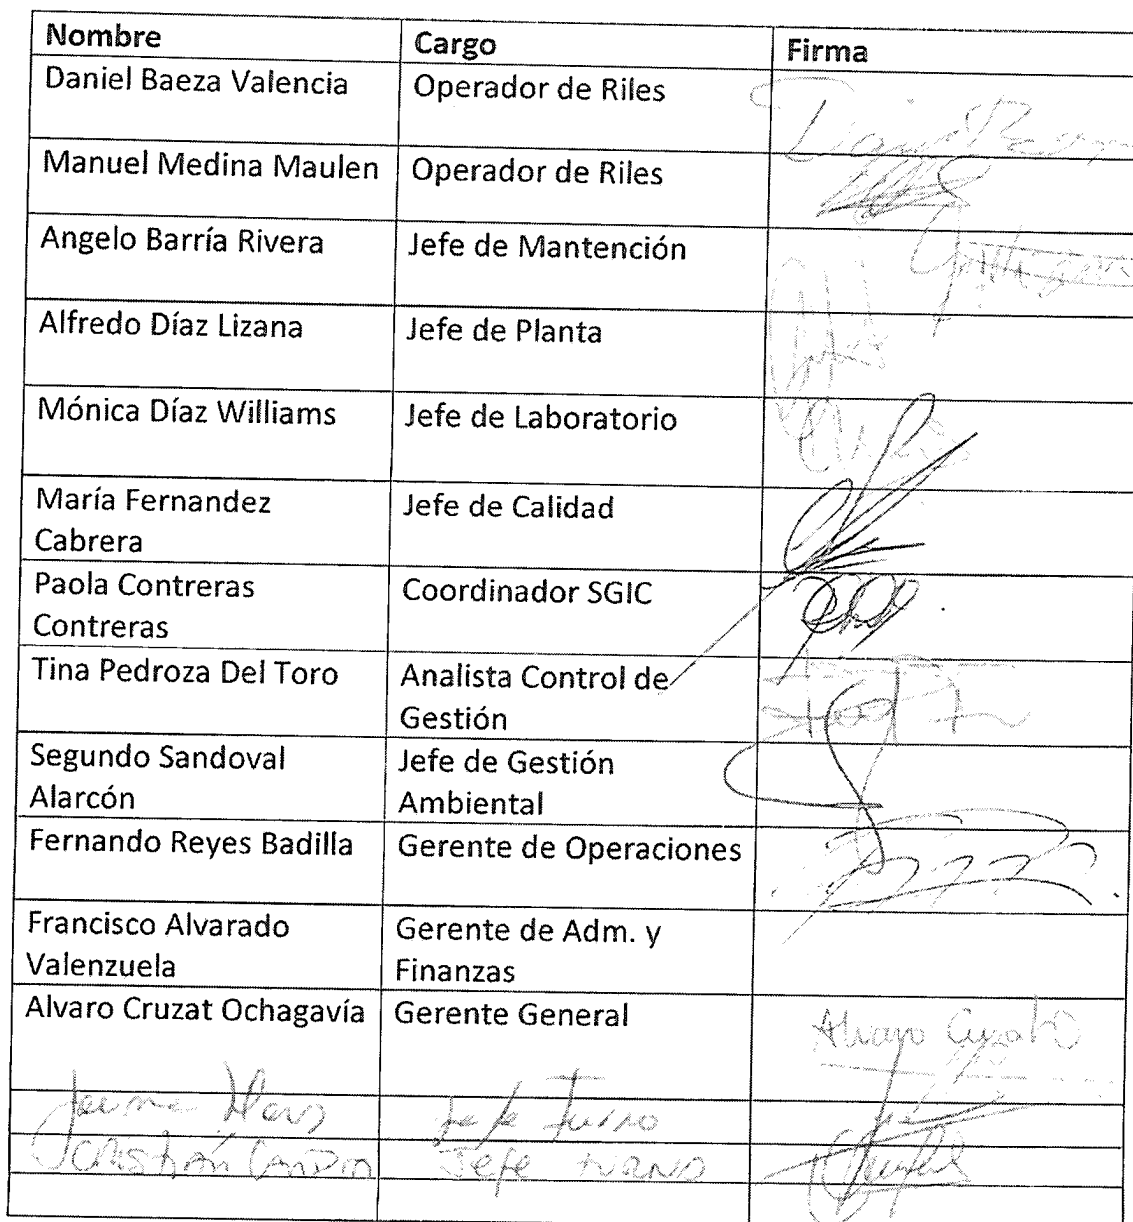 Nombre Cargo Firma
Daniel Baeza Valencia Operador de Riles
Manuel Medina Maulen Operador de Riles
Angelo Barría Rivera Jefe de Mantención
Alfredo Díaz Lizana Jefe de Planta
Mónica Díaz Williams Jefe de Laboratorio
María Fernandez Jefe de Calidad
Cabrera
Paola Contreras Coordinador SGIC
Contreras
Tina Pedroza Del Toro Analista Control de
Gestión
Segundo Sandoval Jefe de Gestión
Alarcón Ambiental
Fernando Reyes Badilla Gerente de Operaciones
Francisco Alvarado Gerente de Adm. y
Valenzuela Finanzas
Alvaro Cruzat Ochagavía Gerente General Alvaro Cruzat O
Jaime Jefe Turno
Cristián Candia Jefe turno